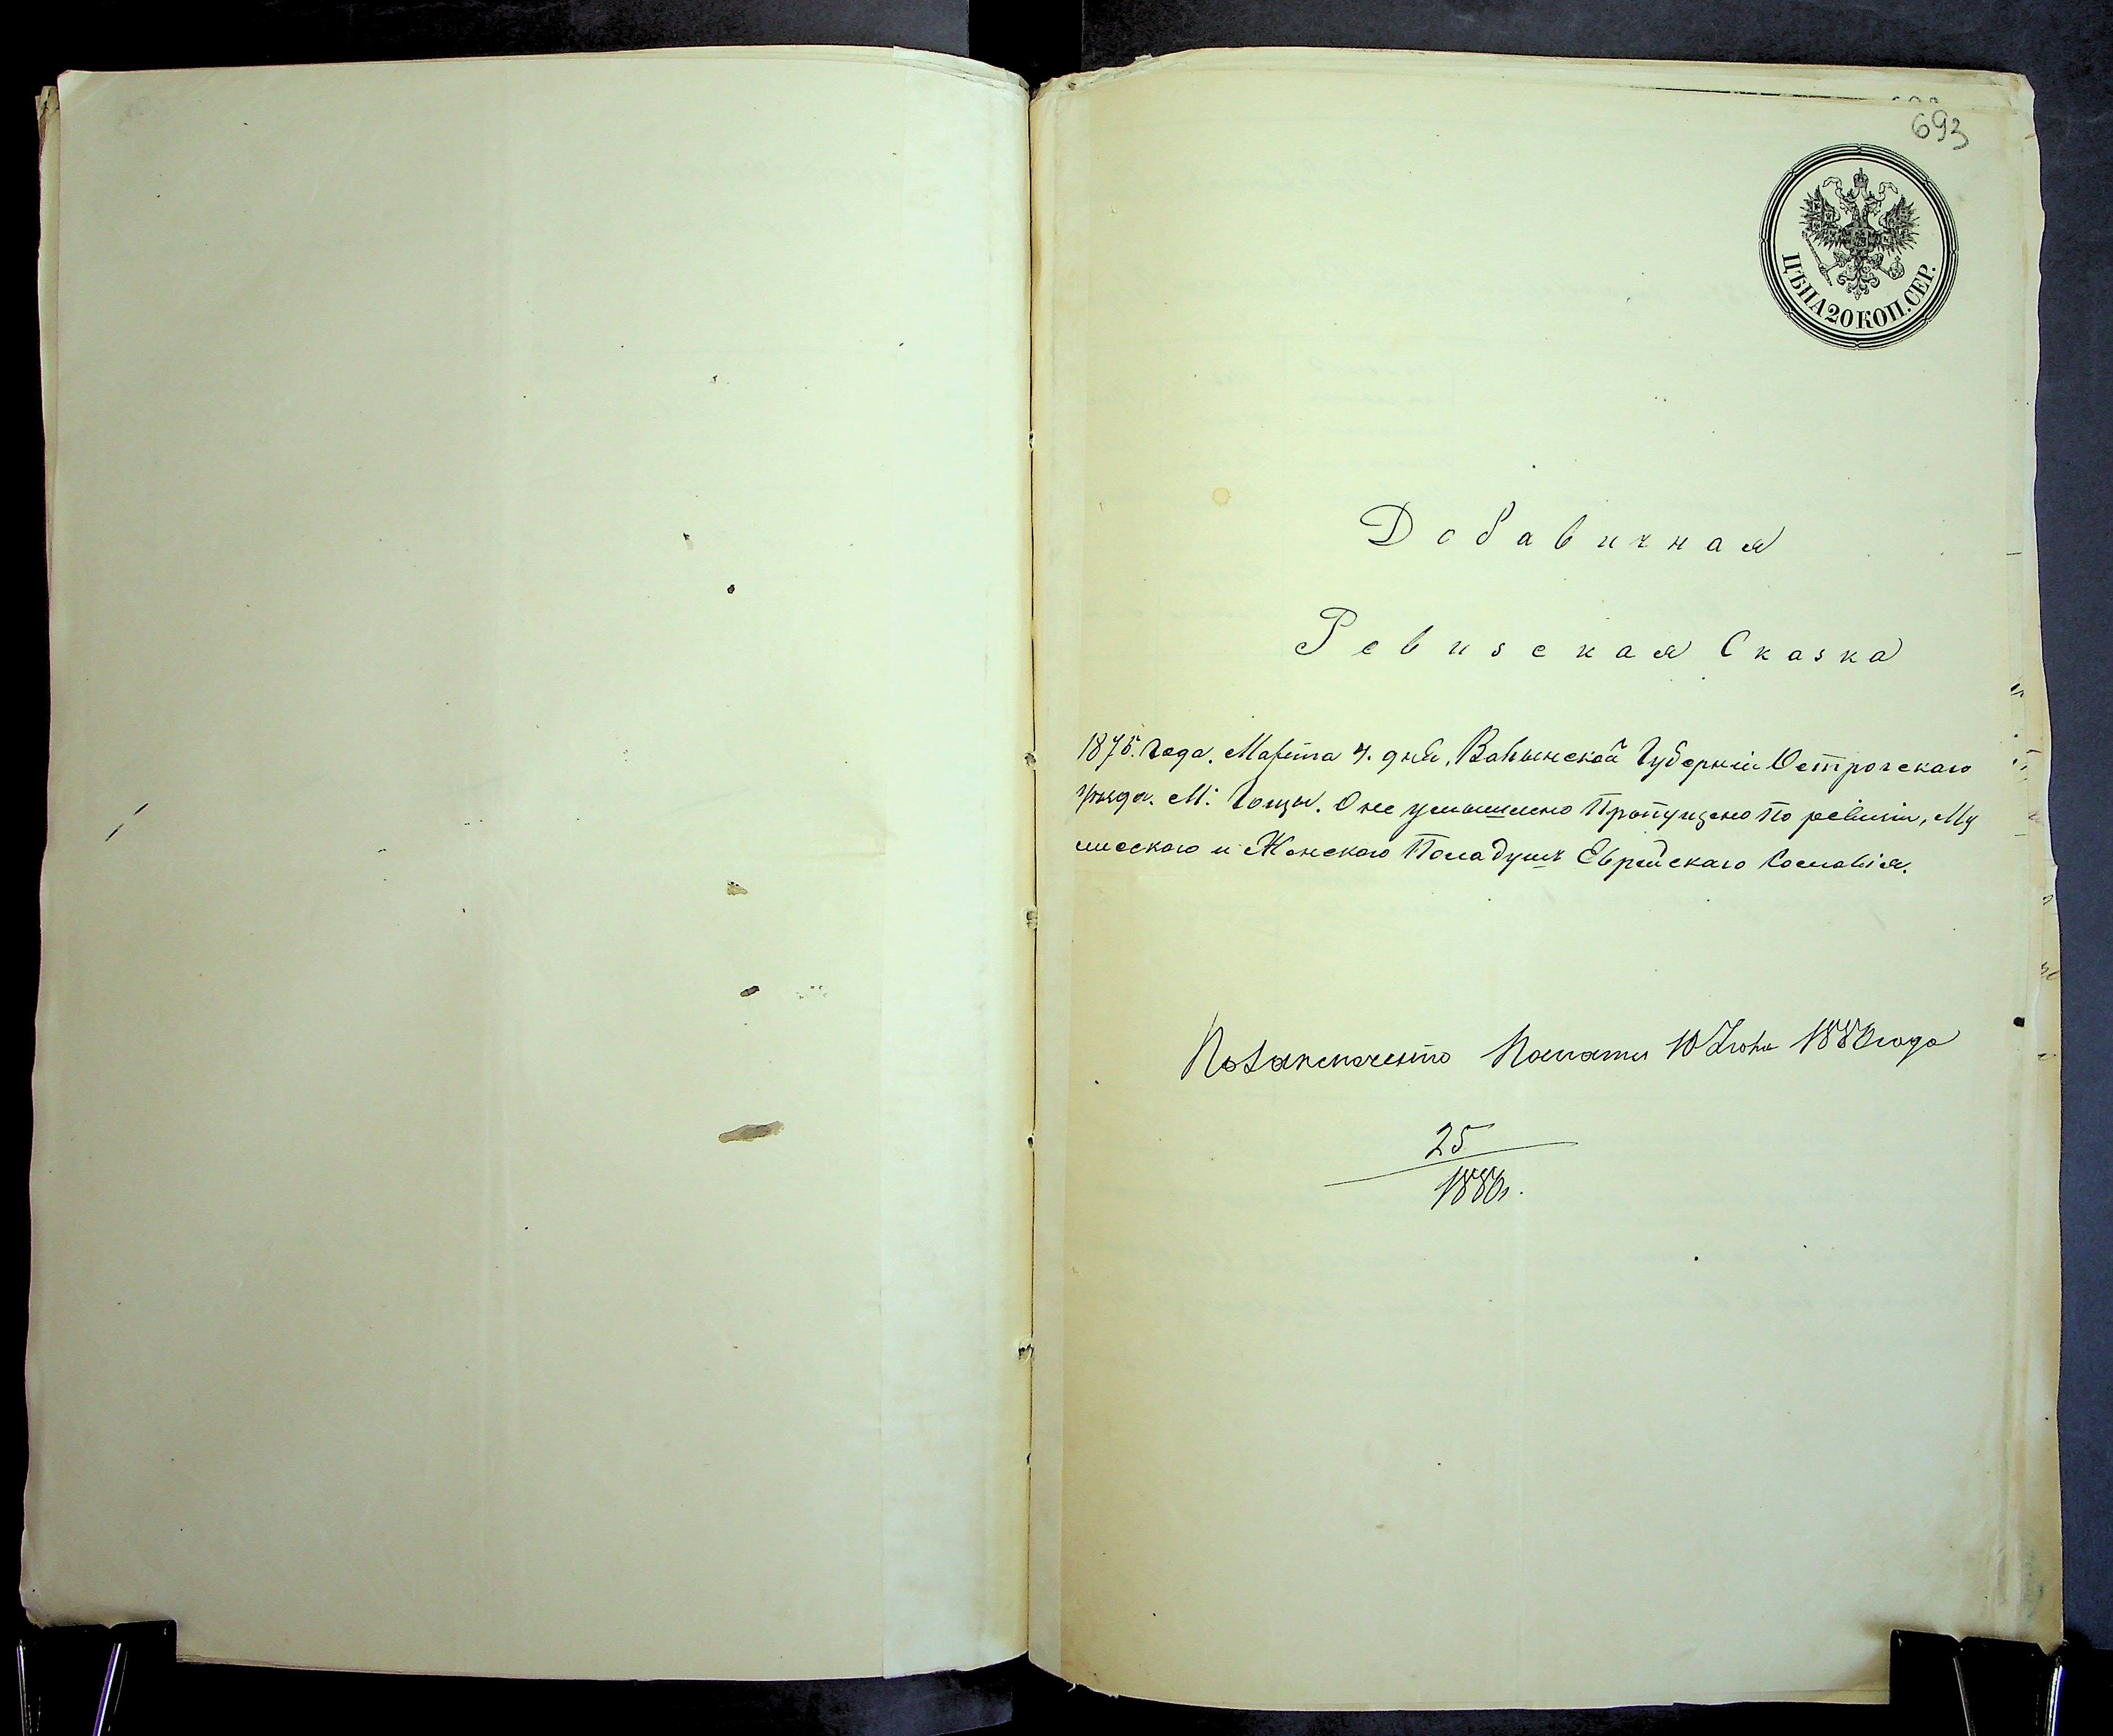 693
ЦѢНА 20 КОП. СЕР.
Добавичная
Ревизская Сказка
1875. Года. Марта 4. дня, Волынской Губерніи Острогскаго
уѣзда. М: Гощи. О не умышлено Пропущено по ревизіи, Му
жескаго и Женскаго Пола душъ Еврейскаго Сословія.
По Заключенію Палаты 10 Іюня 1880 года
25
1880.